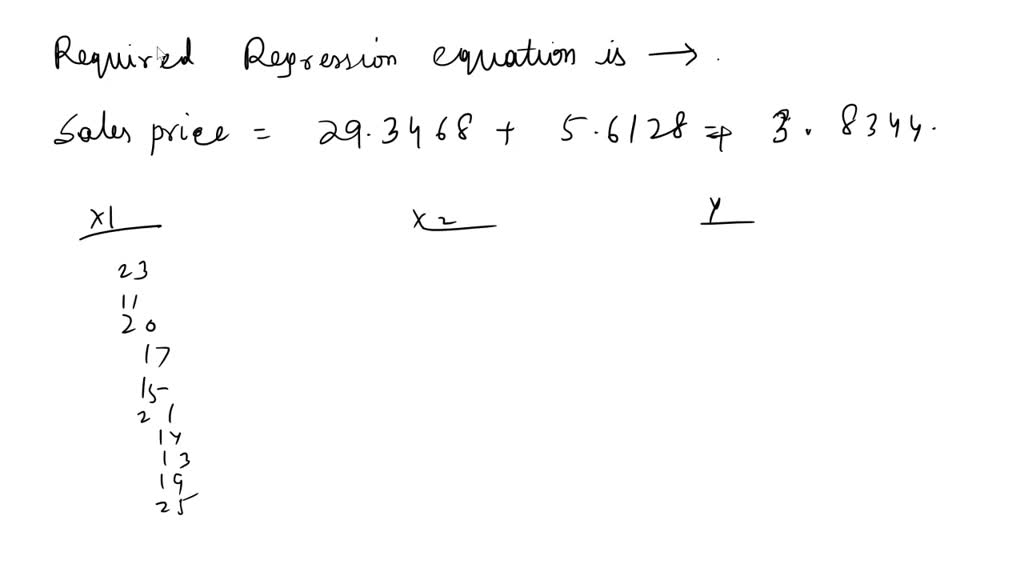 Required Regression equation is → .
Sales price = 29.3468 + 5.6128 ⇒ 3. 8344.
X1 X2 Y
23
11
20
17
15
21
14
13
19
25